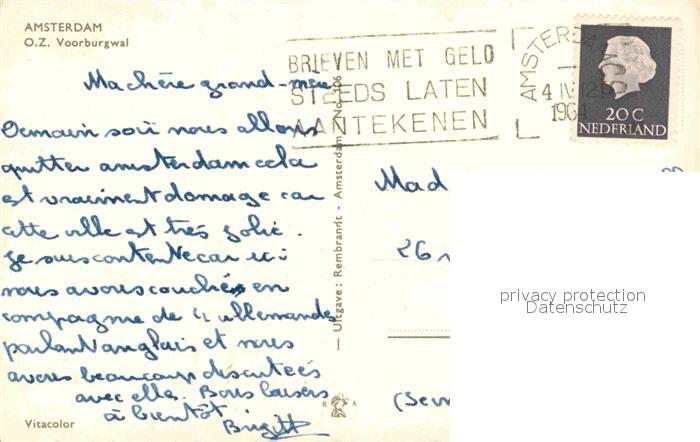 AMSTERDAM
O.Z. Voorburgwal
BRIEVEN MET GELD
STEEDS LATEN
AANTEKENEN
AMSTERDAM
4 IV 12
1964
20 C
NEDERLAND
Ma chère grand-mère
Demain soir nous allons
quitter amsterdam cela
est vraiment domage car
cette ville est très jolie.
Je suis contente car ici
nous avons couchés en
compagnie de 4 allemandes
parlant anglais et nous
avons beaucoup discutées
avec elles. Bons baisers
à bientôt
Brigitt
Vitacolor
— Uitgave: Rembrandt - Amsterdam - No. 106
R A
Mad
26
(Sei
privacy protection
Datenschutz